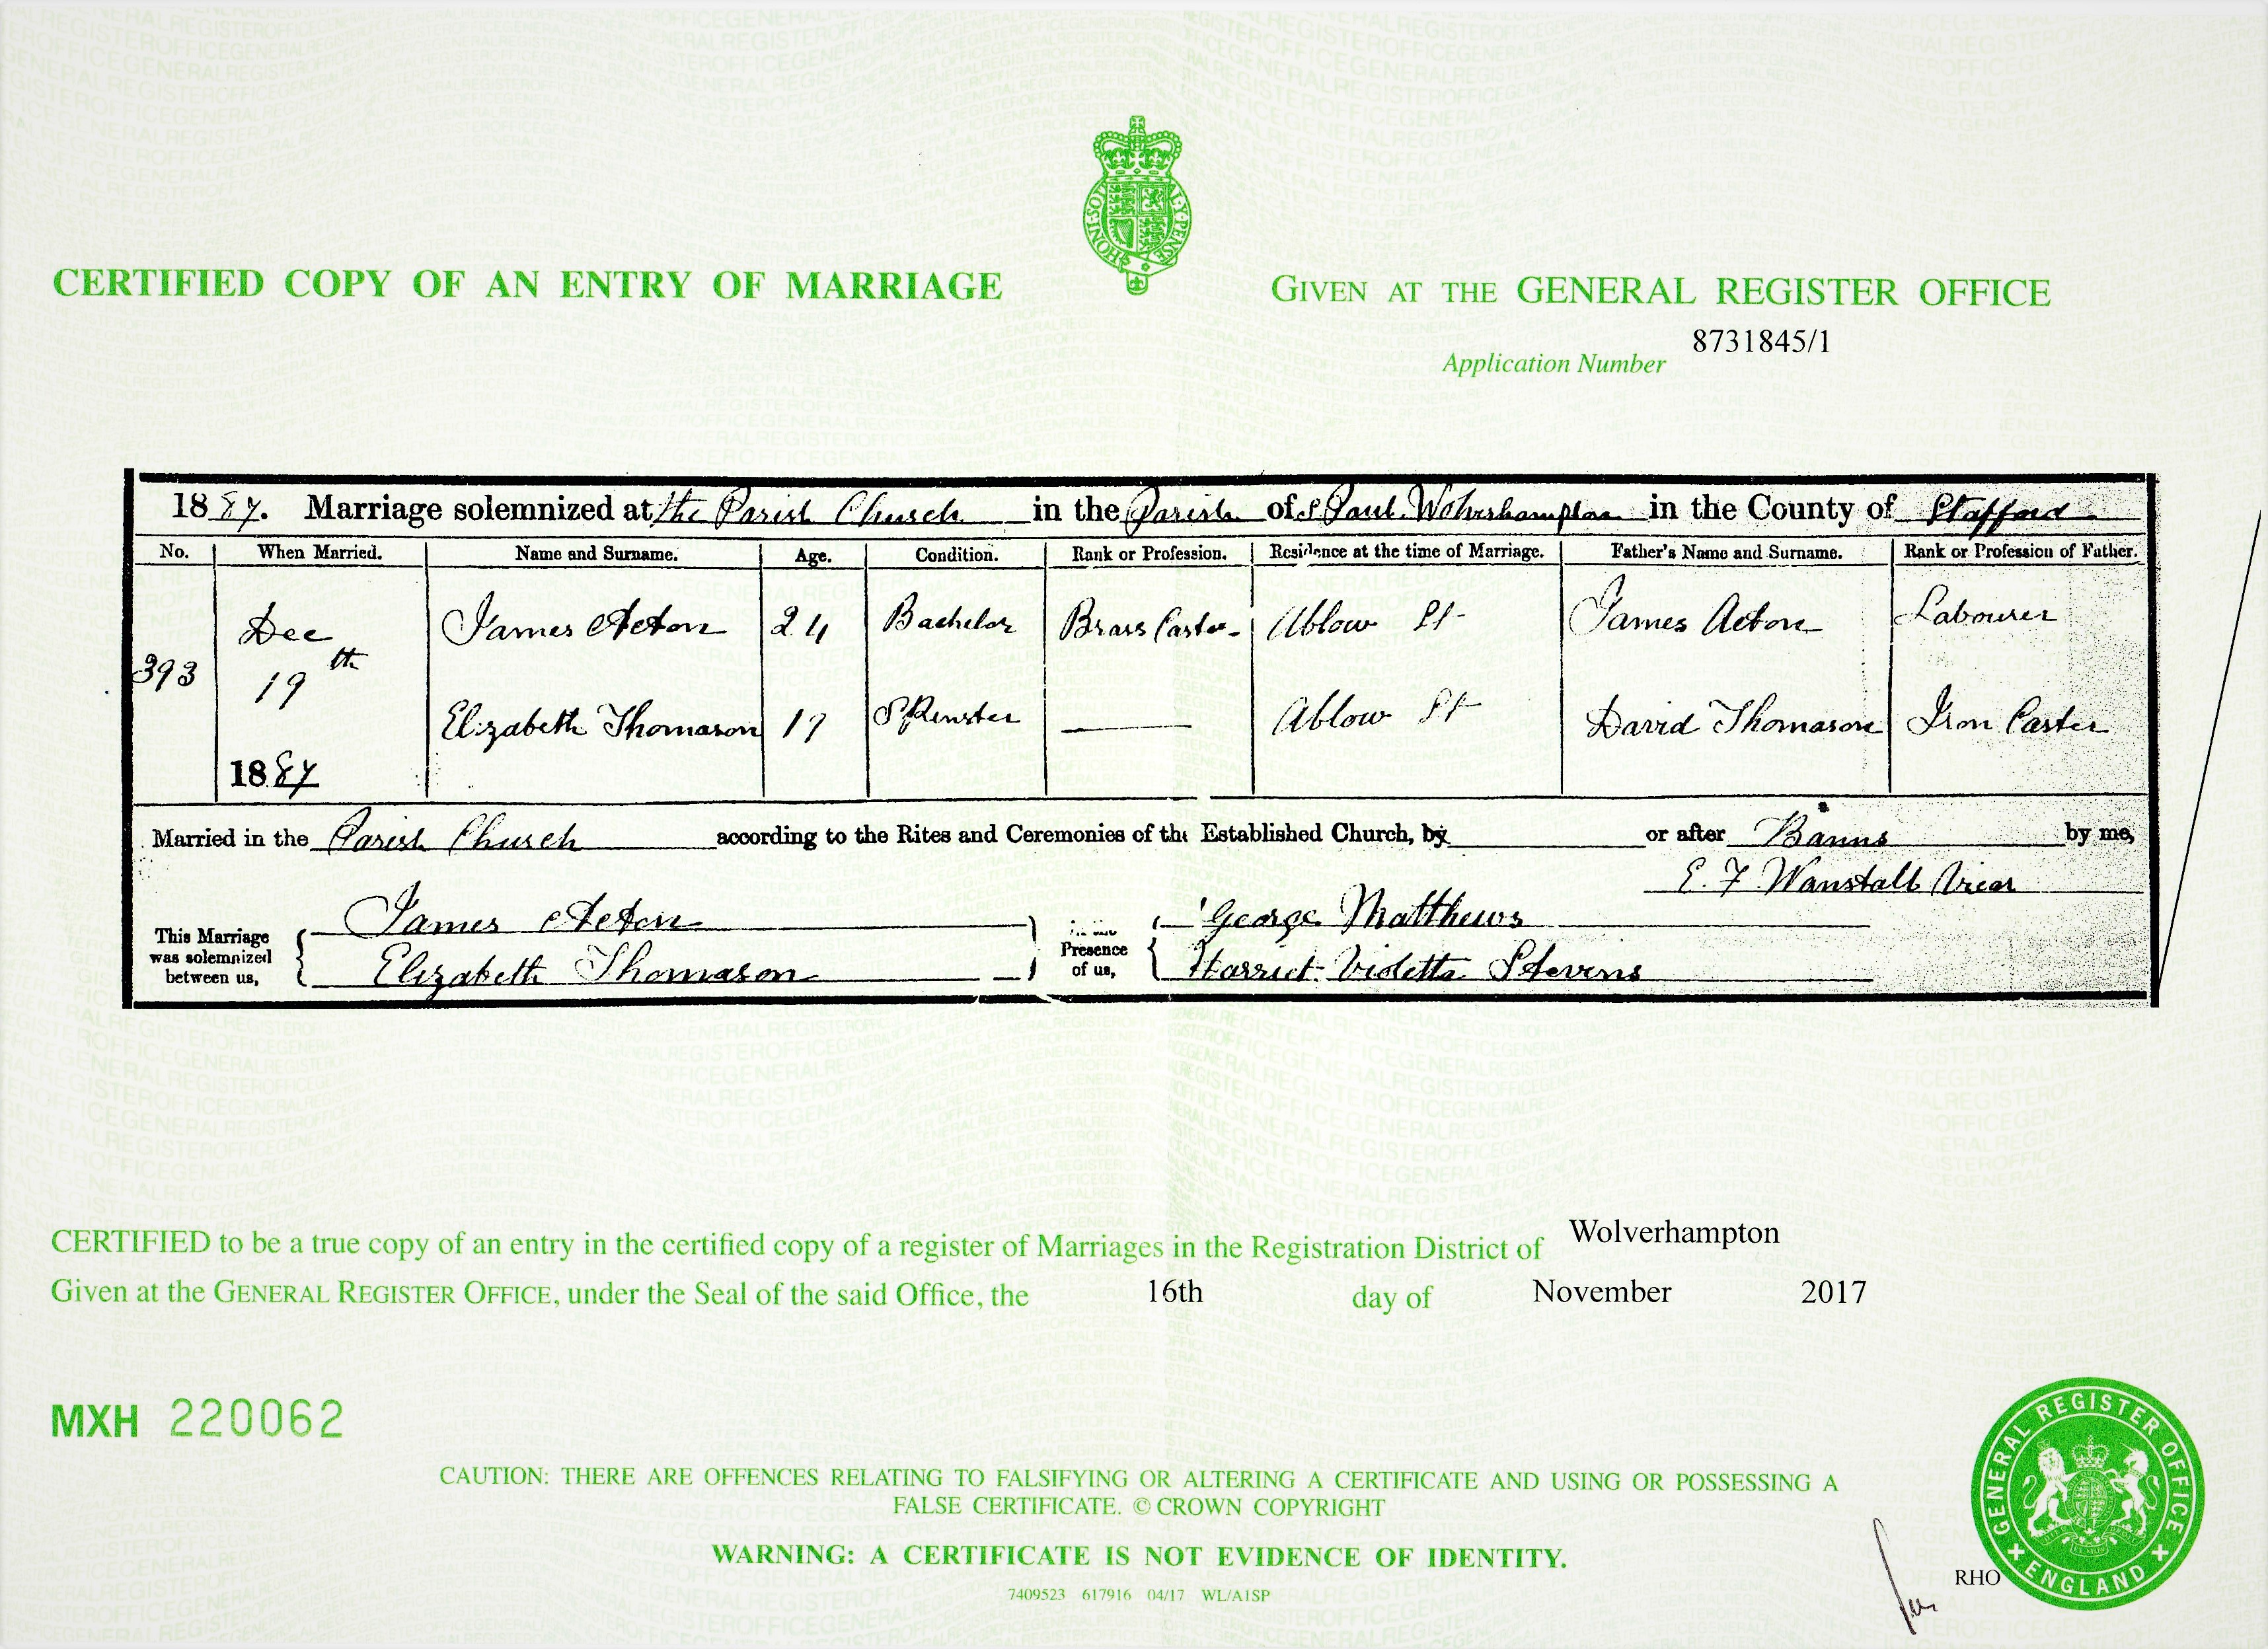 HONI·SOIT
AL·Y·PENSE
CERTIFIED COPY OF AN ENTRY OF MARRIAGE
GIVEN AT THE GENERAL REGISTER OFFICE
Application Number 8731845/1
1887. Marriage solemnized at the Parish Church in the Parish of S Paul Wolverhampton in the County of Stafford
No. When Married. Name and Surname. Age. Condition. Rank or Profession. Residence at the time of Marriage. Father's Name and Surname. Rank or Profession of Father.
393 Dec 19th 1887
James Acton 24 Bachelor Brass Caster Ablow St James Acton Labourer
Elizabeth Thomason 17 Spinster — Ablow St David Thomason Iron Caster
Married in the Parish Church according to the Rites and Ceremonies of the Established Church, by or after Banns by me,
E. F. Wanstall Vicar
This Marriage was solemnized between us,
James Acton
Elizabeth Thomason
Presence of us,
George Matthews
Harriet Violetta Stevens
CERTIFIED to be a true copy of an entry in the certified copy of a register of Marriages in the Registration District of Wolverhampton
Given at the GENERAL REGISTER OFFICE, under the Seal of the said Office, the 16th day of November 2017
MXH 220062
CAUTION: THERE ARE OFFENCES RELATING TO FALSIFYING OR ALTERING A CERTIFICATE AND USING OR POSSESSING A
FALSE CERTIFICATE. © CROWN COPYRIGHT
WARNING: A CERTIFICATE IS NOT EVIDENCE OF IDENTITY.
7409523 617916 04/17 WL/A1SP
RHO
GENERAL REGISTER OFFICE
ENGLAND